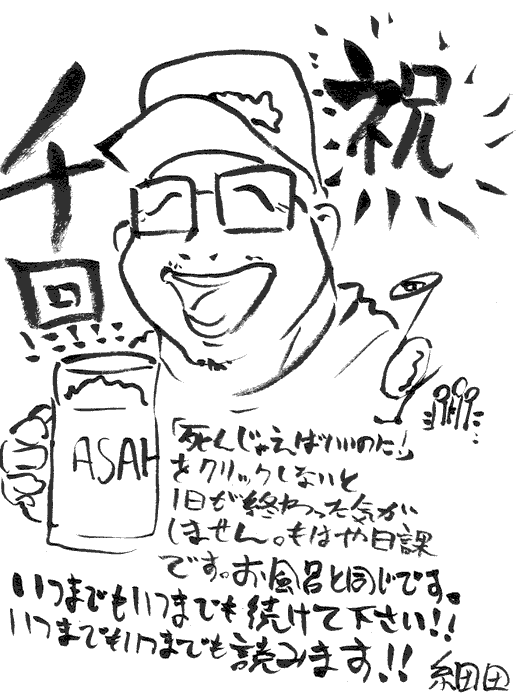 祝
千
回
ASAH
「死んじゃえばいいのに」
をクリックしないと
1日が終わった気が
しません。もはや日課
です。お風呂と同じです。
いつまでもいつまでも続けて下さい!!
いつまでもいつまでも読みます!!
細田